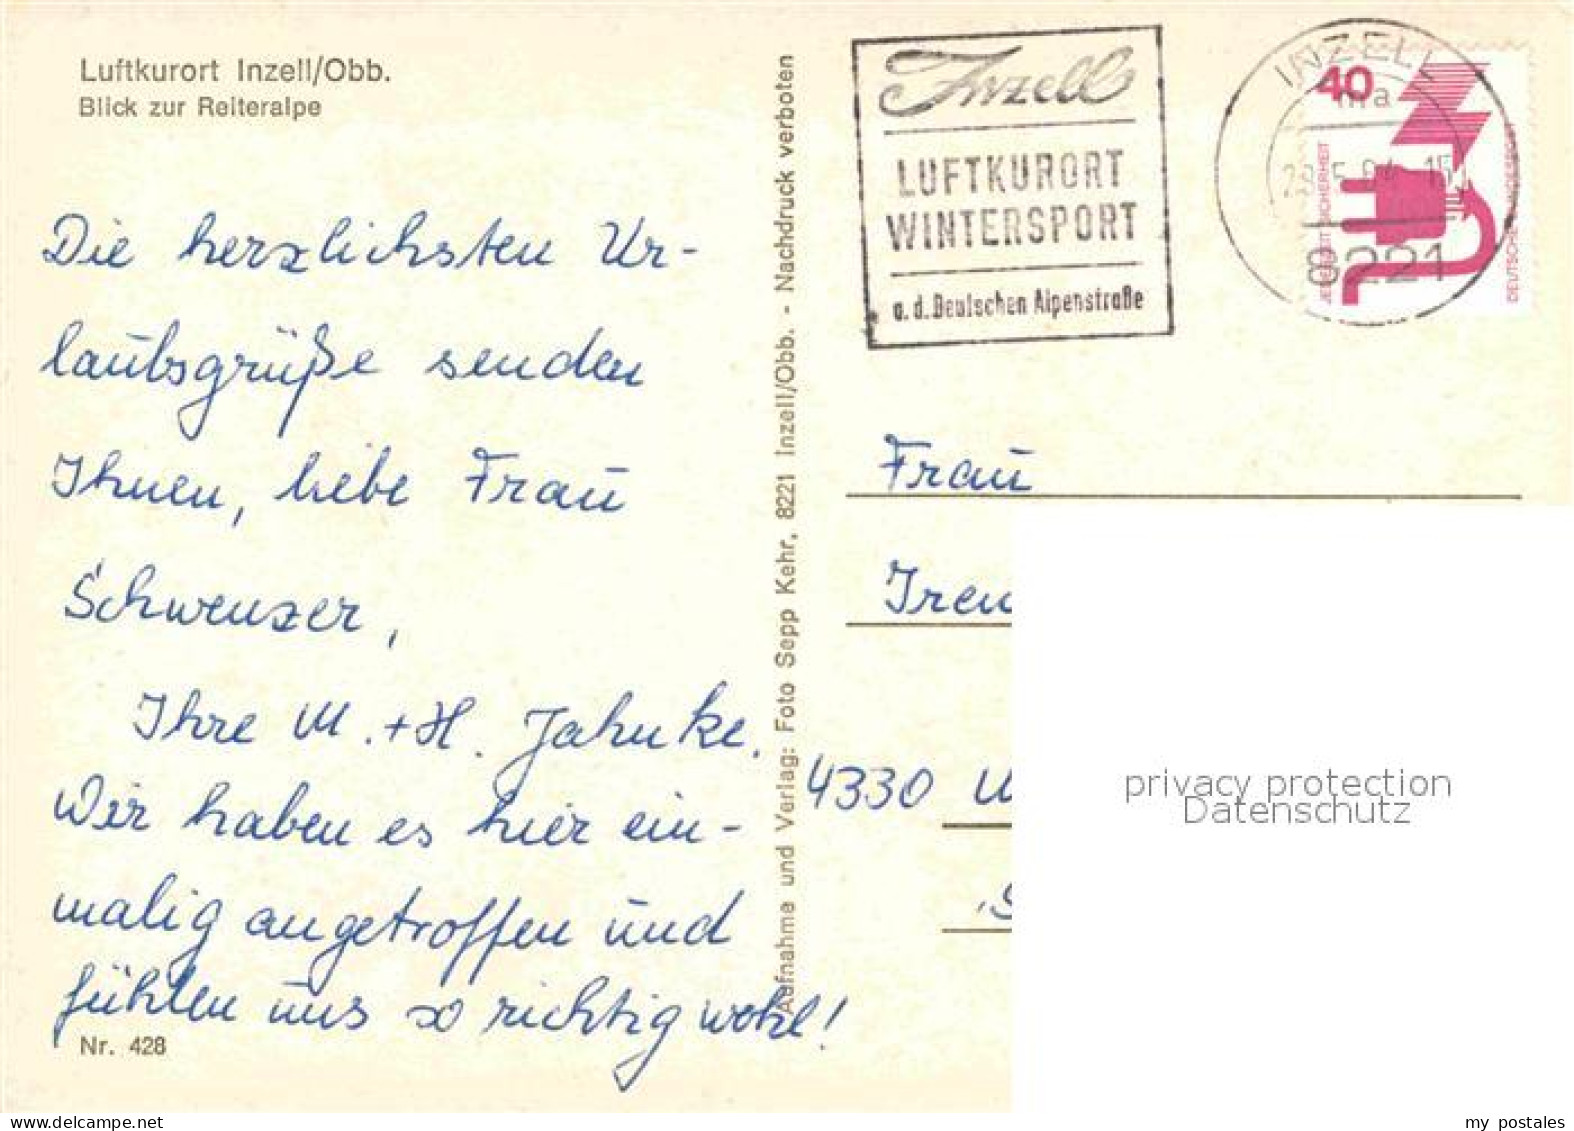 Luftkurort Inzell/Obb.
Blick zur Reiteralpe
Die herzlichsten Ur-
laubsgrüße senden
Ihnen, liebe Frau
Schwenzer,
Ihre M. + H. Jahnke.
Wir haben es hier ein-
malig angetroffen und
fühlen uns so richtig wohl!
Nr. 428
Aufnahme und Verlag: Foto Sepp Kehr, 8221 Inzell/Obb. - Nachdruck verboten
Inzell
LUFTKURORT
WINTERSPORT
a. d. Deutschen Alpenstraße
INZELL
40
ma
8221
JEDERZEIT SICHERHEIT
DEUTSCHE BUNDESPOST
Frau
Iren
4330
privacy protection
Datenschutz
delcampe.net
my postales